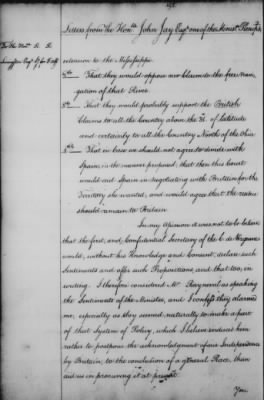 Letters from the Honble John Jay Esqr one of the
To the
extension to the Mississippi.
2nd That they would oppose our Claim to the free navi-
gation of that River.
3d That they would probably support the British
Claims to all the Country above the 31. of Latitude
and certainly to all the Country North of the Ohio
4th That in case we should not agree to divide with
Spain in the manner proposed, that then this Court
would aid Spain in negotiating with Britain for the
Territory she wanted, and would agree that the residue
should remain to Britain
In my opinion it was not to be believed
that the first, and Confidential Secretary of the C. de Vergennes
would, without his Knowledge and Consent, declare such
Sentiments and offer such Propositions, and that too, in
writing. I therefore considered Mr Rayneval as speaking
the Sentiments of the Minister, and I confess they alarmed
me, especially as they seemed naturally to make a part
of that System of Policy, which I believe induced him
rather to postpone the acknowledgment of our Independence
by Britain, to the conclusion of a general Peace, than
aid us in procuring it at present.
You